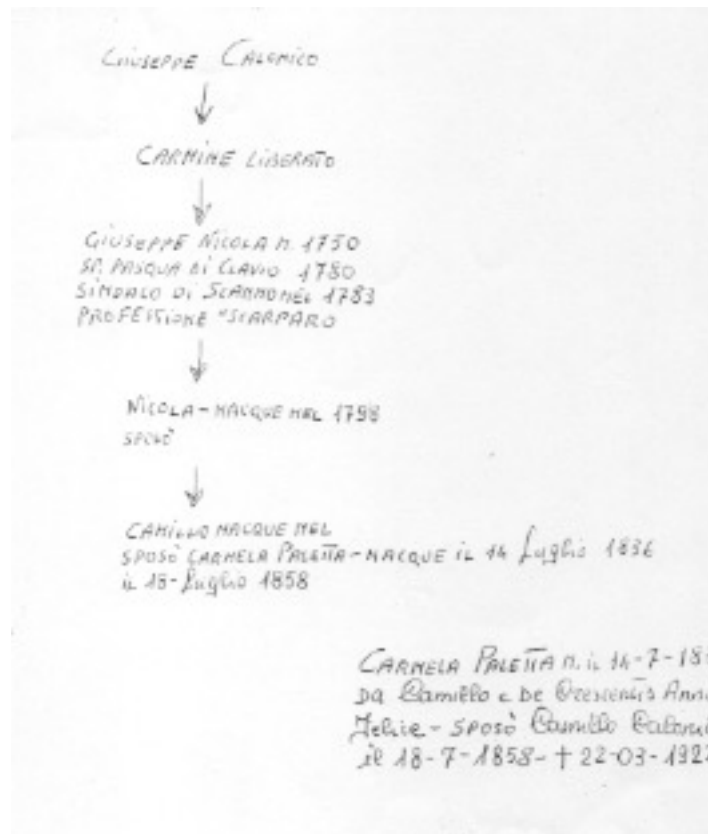 GIUSEPPE CALONICO
CARMINE LIBERATO
GIUSEPPE NICOLA N. 1750
SP. PASQUA DI CLAVIO 1780
SINDACO DI SCANNO NEL 1783
PROFESSIONE "SCARPARO
NICOLA - NACQUE NEL 1798
SPOSÒ
CAMILLO NACQUE NEL
SPOSÒ CARMELA PALETTA - NACQUE IL 14 Luglio 1836
IL 18 - Luglio 1858
CARMELA PALETTA N. IL 14-7-18
DA Camillo e De Crescentis Anna
Felice - SPOSÒ Camillo
il 18-7-1858 - † 22-03-192